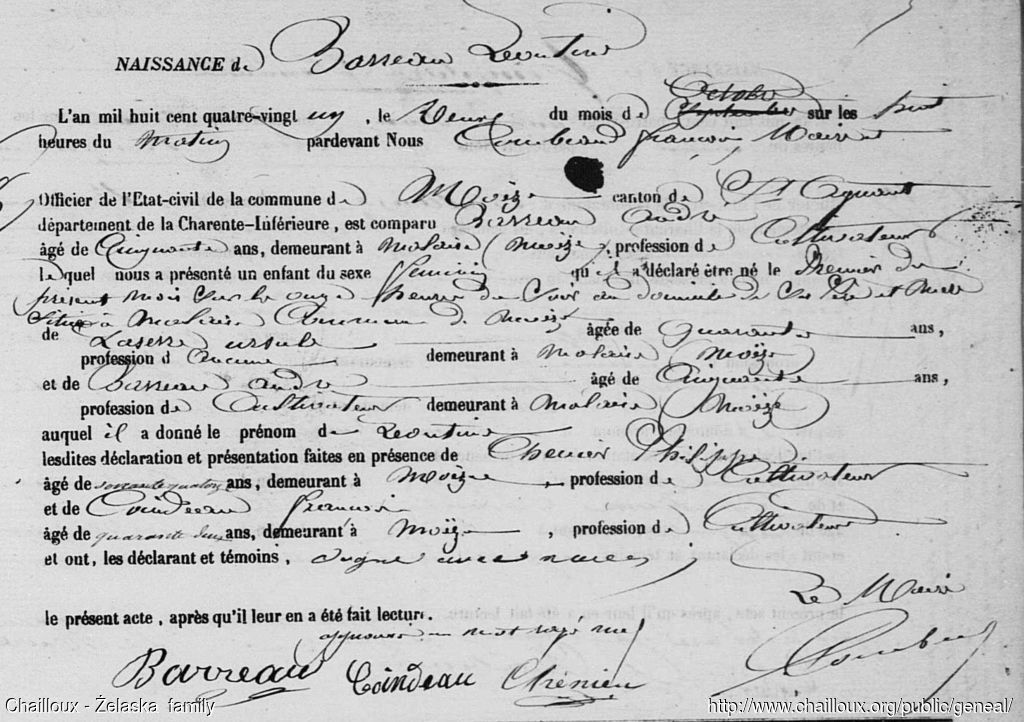 NAISSANCE de Barreau Leontine
L'an mil huit cent quatre-vingt un, le deux du mois de Octobre sur les huit
heures du matin pardevant Nous Combeaud françois Maire et
Officier de l'Etat-civil de la commune de Moëze canton de St Agnant
département de la Charente-Inférieure, est comparu Barreau André
âgé de Cinquante ans, demeurant à Malaise (Moëze), profession de Cultivateur
lequel nous a présenté un enfant du sexe féminin qu'il a déclaré être né le Premier du
présent mois sur les onze heures du soir au domicile de ses Père et Mère
situé à Malaise Commune de Moëze
de Laserre ursule âgée de quarante ans,
profession d aucune demeurant à Malaise (Moëze)
et de Barreau André âgé de Cinquante ans,
profession de Cultivateur demeurant à Malaise (Moëze)
auquel il a donné le prénom de Leontine
lesdites déclaration et présentation faites en présence de Chenier Philippe
âgé de soixante quatorze ans, demeurant à Moëze, profession de Cultivateur
et de Coindeau françois
âgé de quarante deux ans, demeurant à Moëze, profession de Cultivateur
et ont, les déclarant et témoins, signé avec nous
le présent acte, après qu'il leur en a été fait lecture.
Le Maire
approuvé un mot rayé nul
Barreau Coindeau Chénier
Chailloux - Żelaska family http://www.chailloux.org/public/geneal/